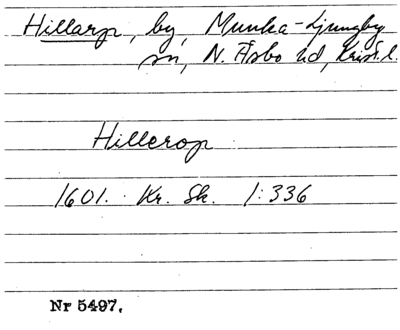 Hillarp, by, Munka-Ljungby
sn, N. Åsbo hd, Krist. l.
Hillerop
1601. Kr. Sk. 1:336
Nr 5497.